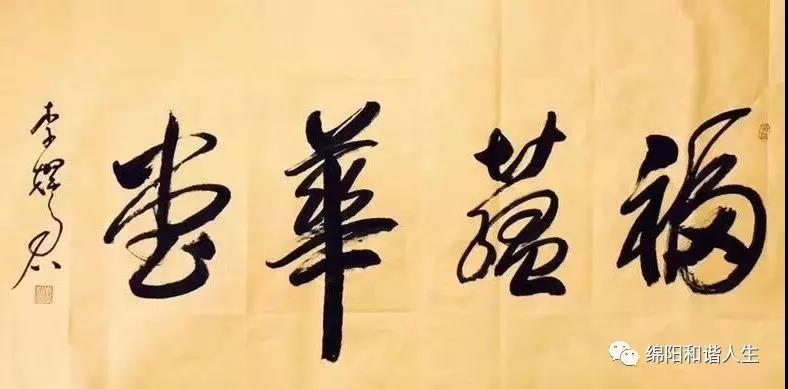 福蕴華堂
李耀君
绵阳和谐人生